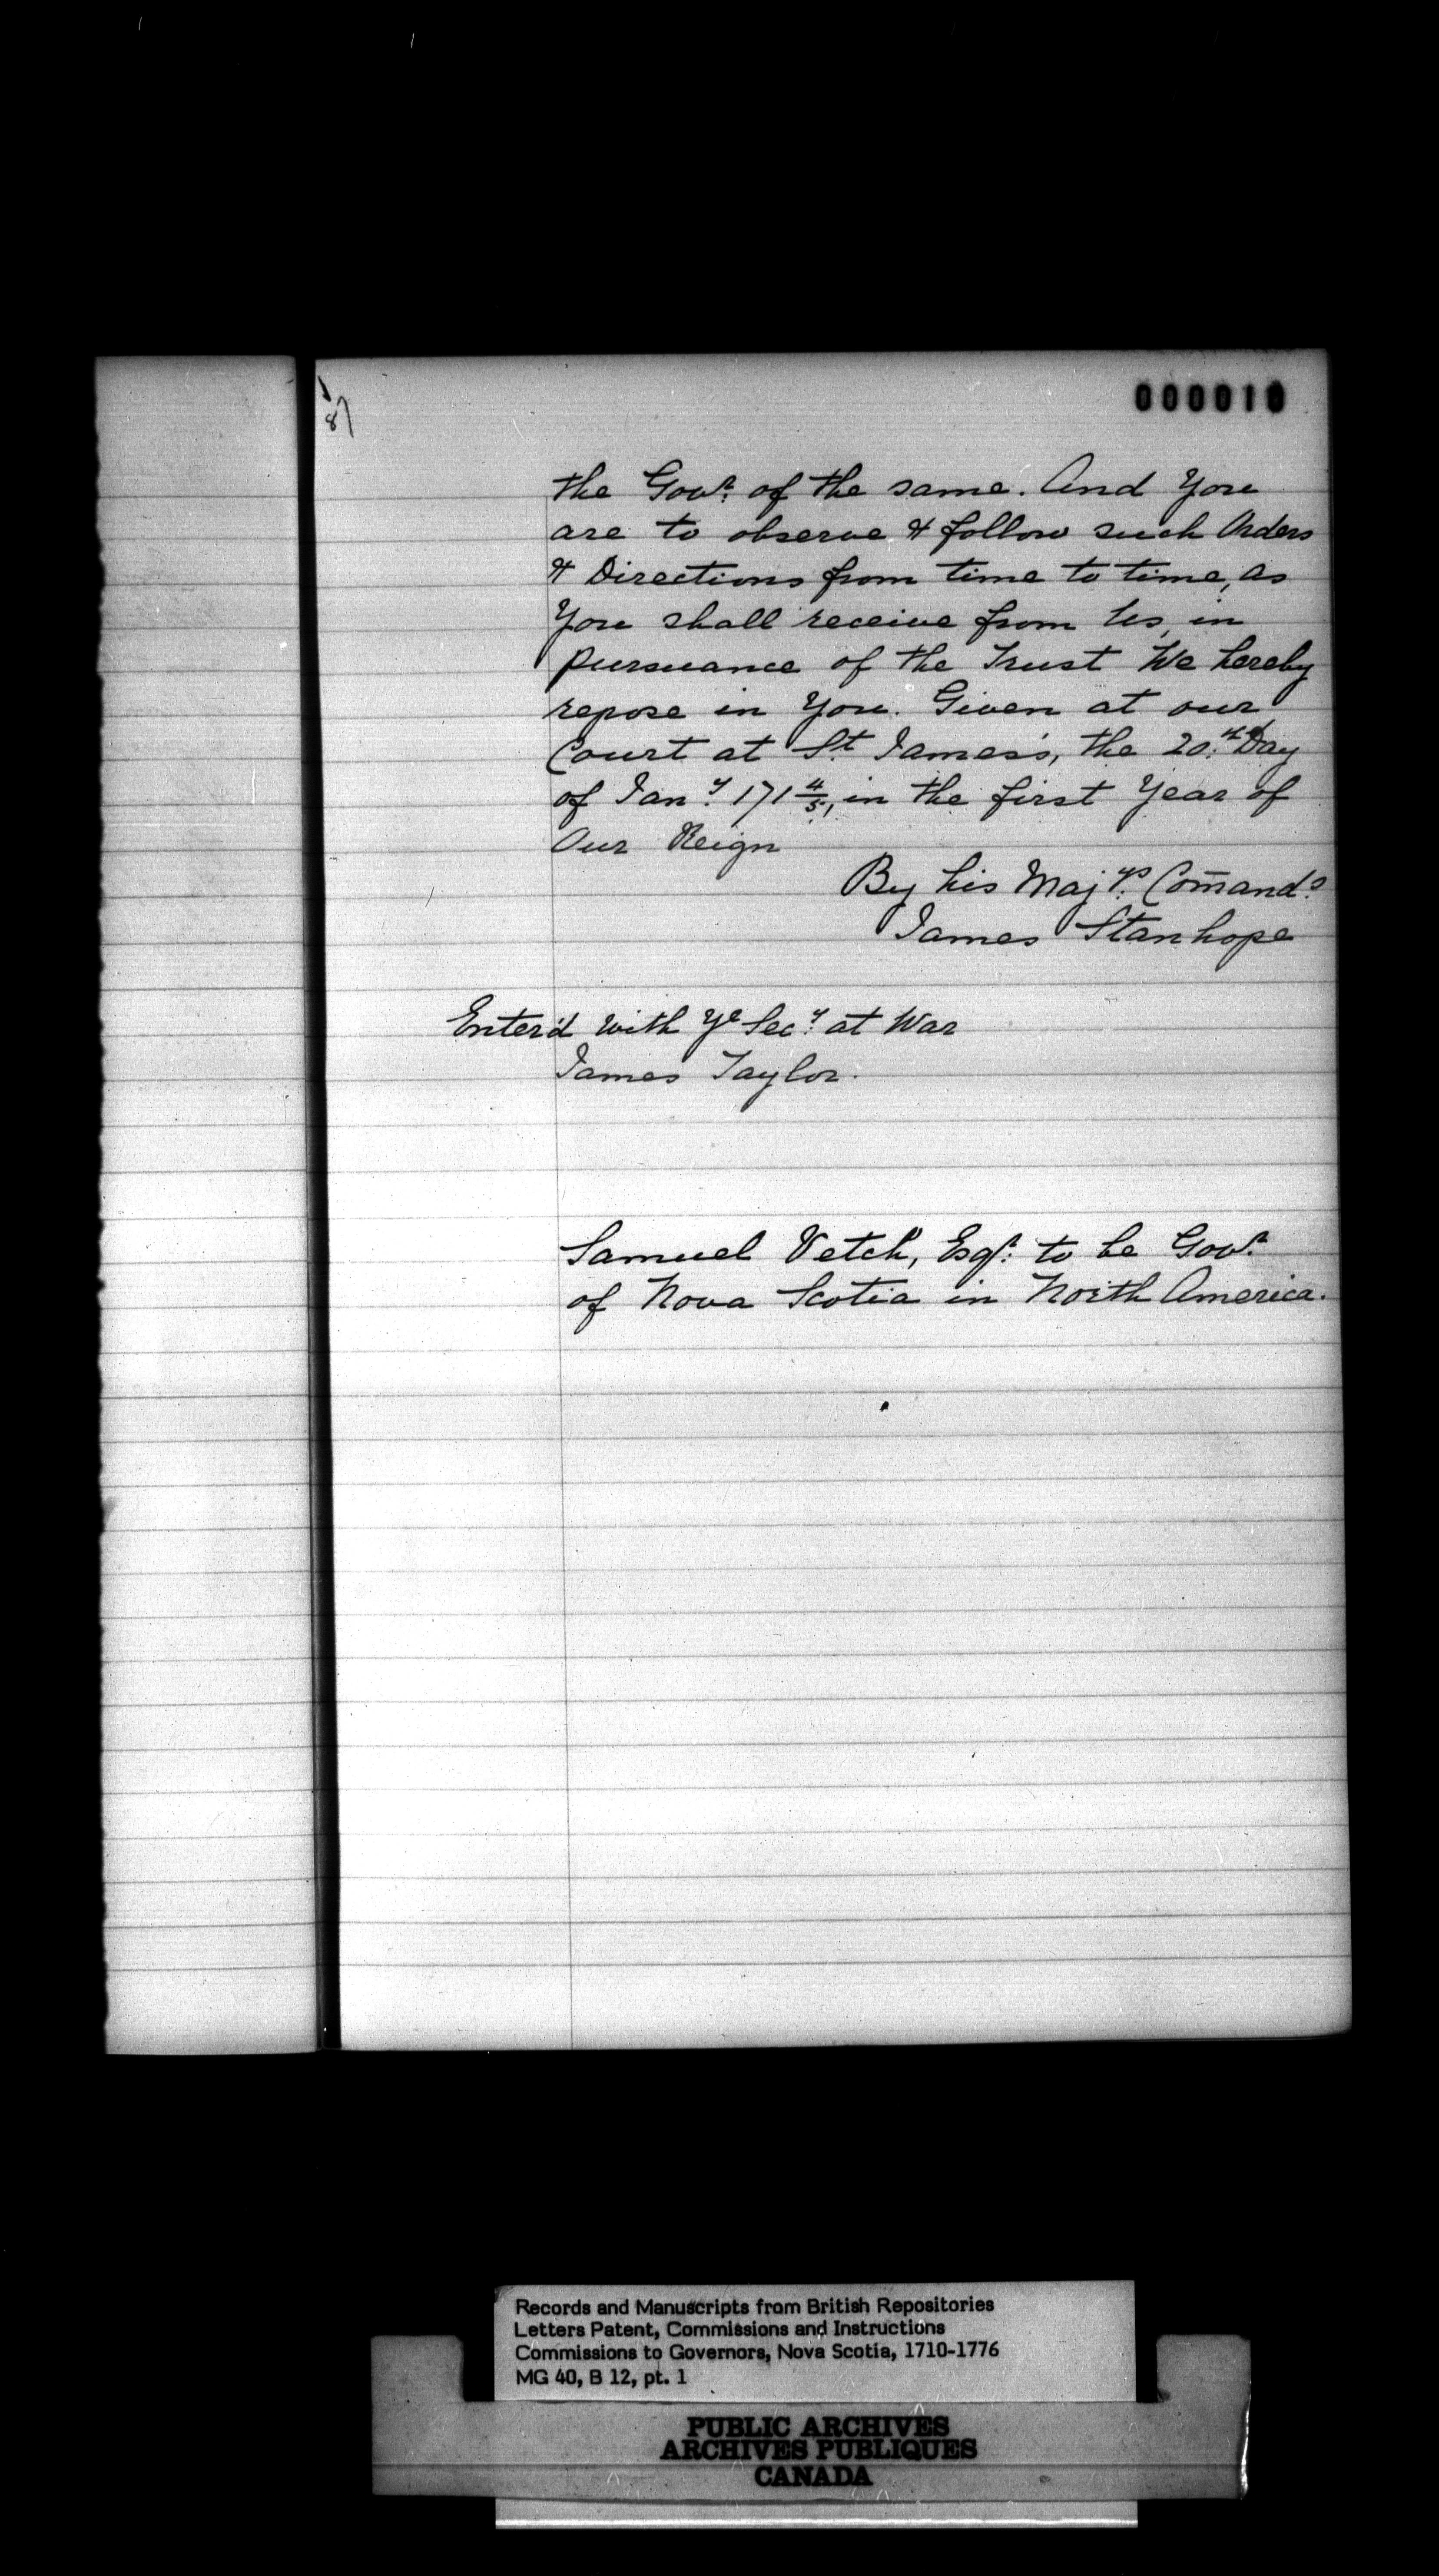 8)
000010
the Govr. of the same. And You
are to observe & follow such Orders
& Directions from time to time, as
You shall receive from Us, in
pursuance of the Trust We hereby
repose in You. Given at our
Court at St. James's, the 20th. Day
of Jany. 171 4/5, in the first Year of
Our Reign
By his Majtys. Com̄ands.
James Stanhope
Enter'd with Ye Secy. at War
James Taylor.
Samuel Vetch, Esqr. to be Govr.
of Nova Scotia in North America.
Records and Manuscripts from British Repositories
Letters Patent, Commissions and Instructions
Commissions to Governors, Nova Scotia, 1710-1776
MG 40, B 12, pt. 1
PUBLIC ARCHIVES
ARCHIVES PUBLIQUES
CANADA